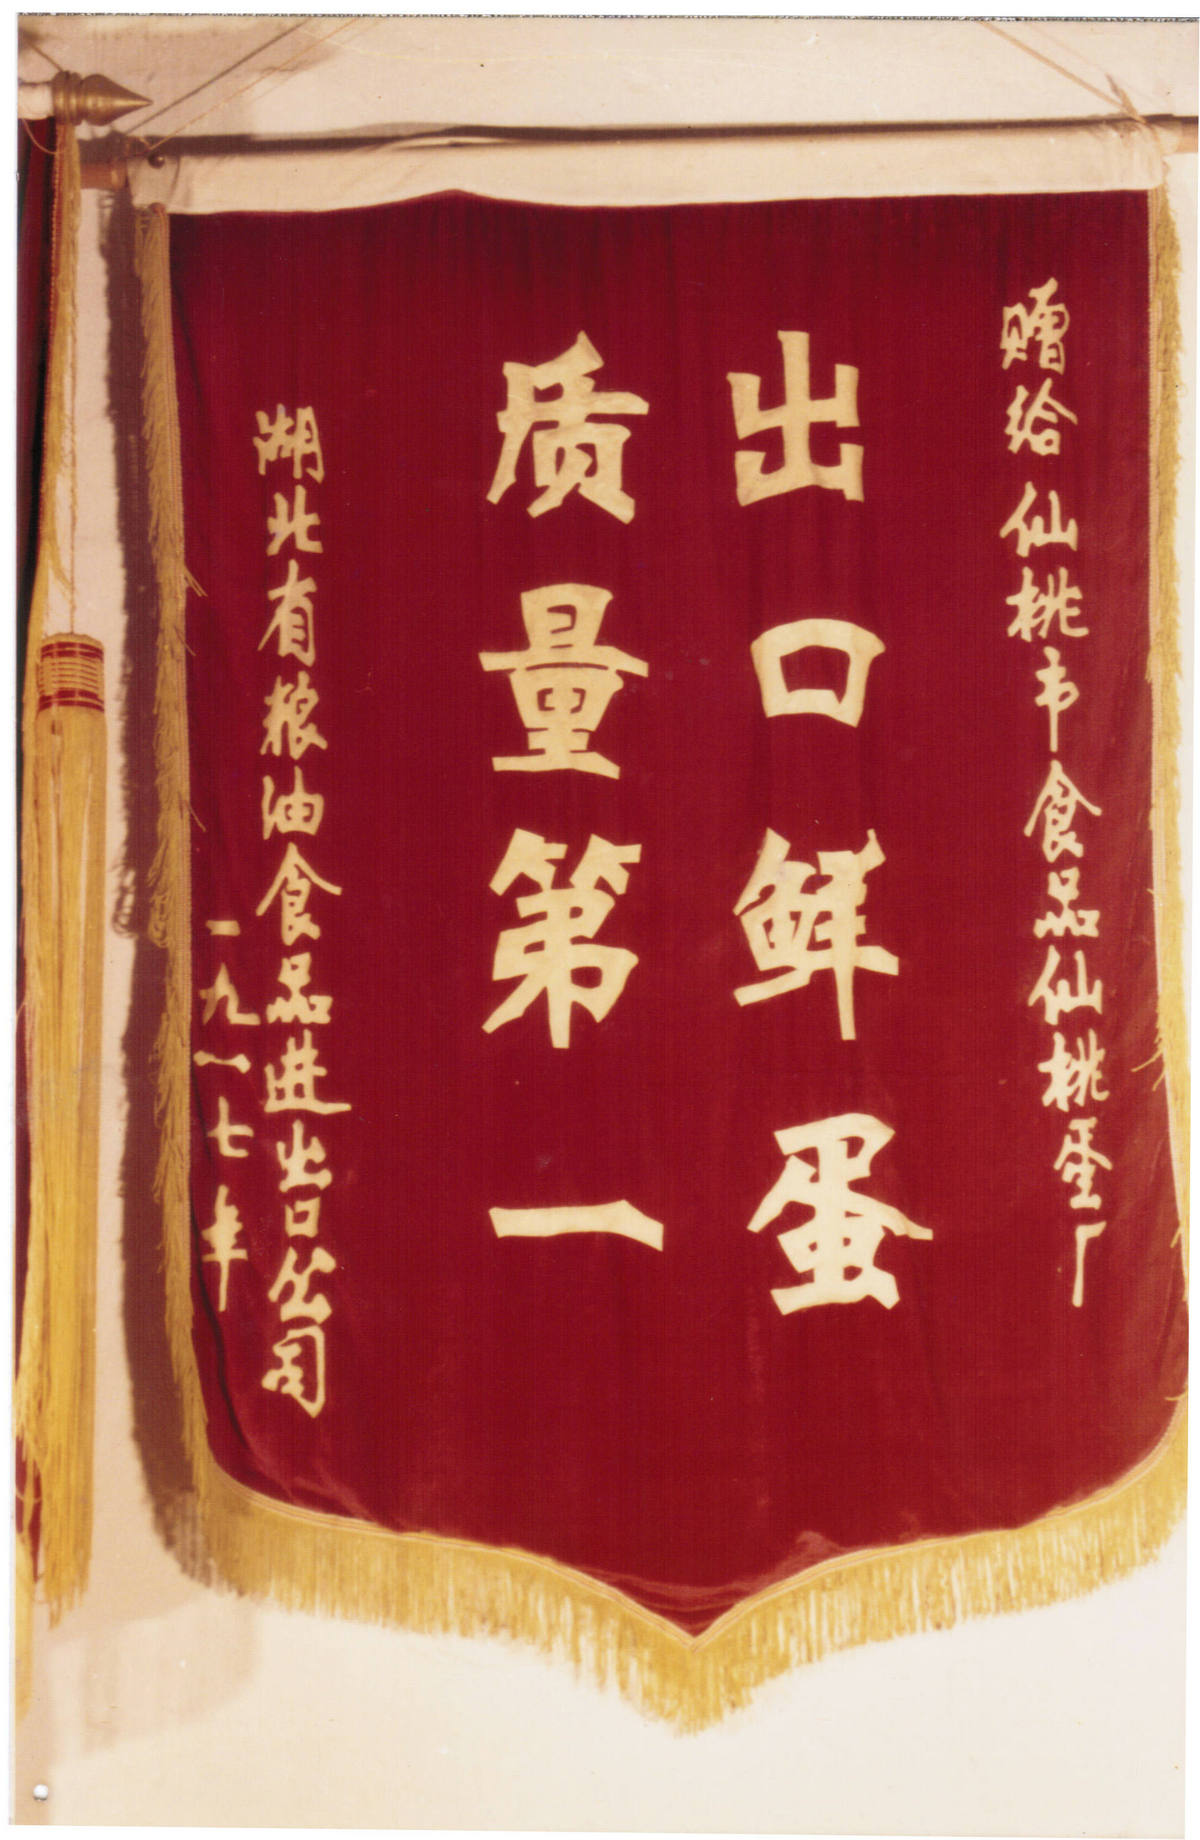 赠给仙桃市食品仙桃蛋厂
出口鲜蛋
质量第一
湖北省粮油食品进出口公司
一九八七年